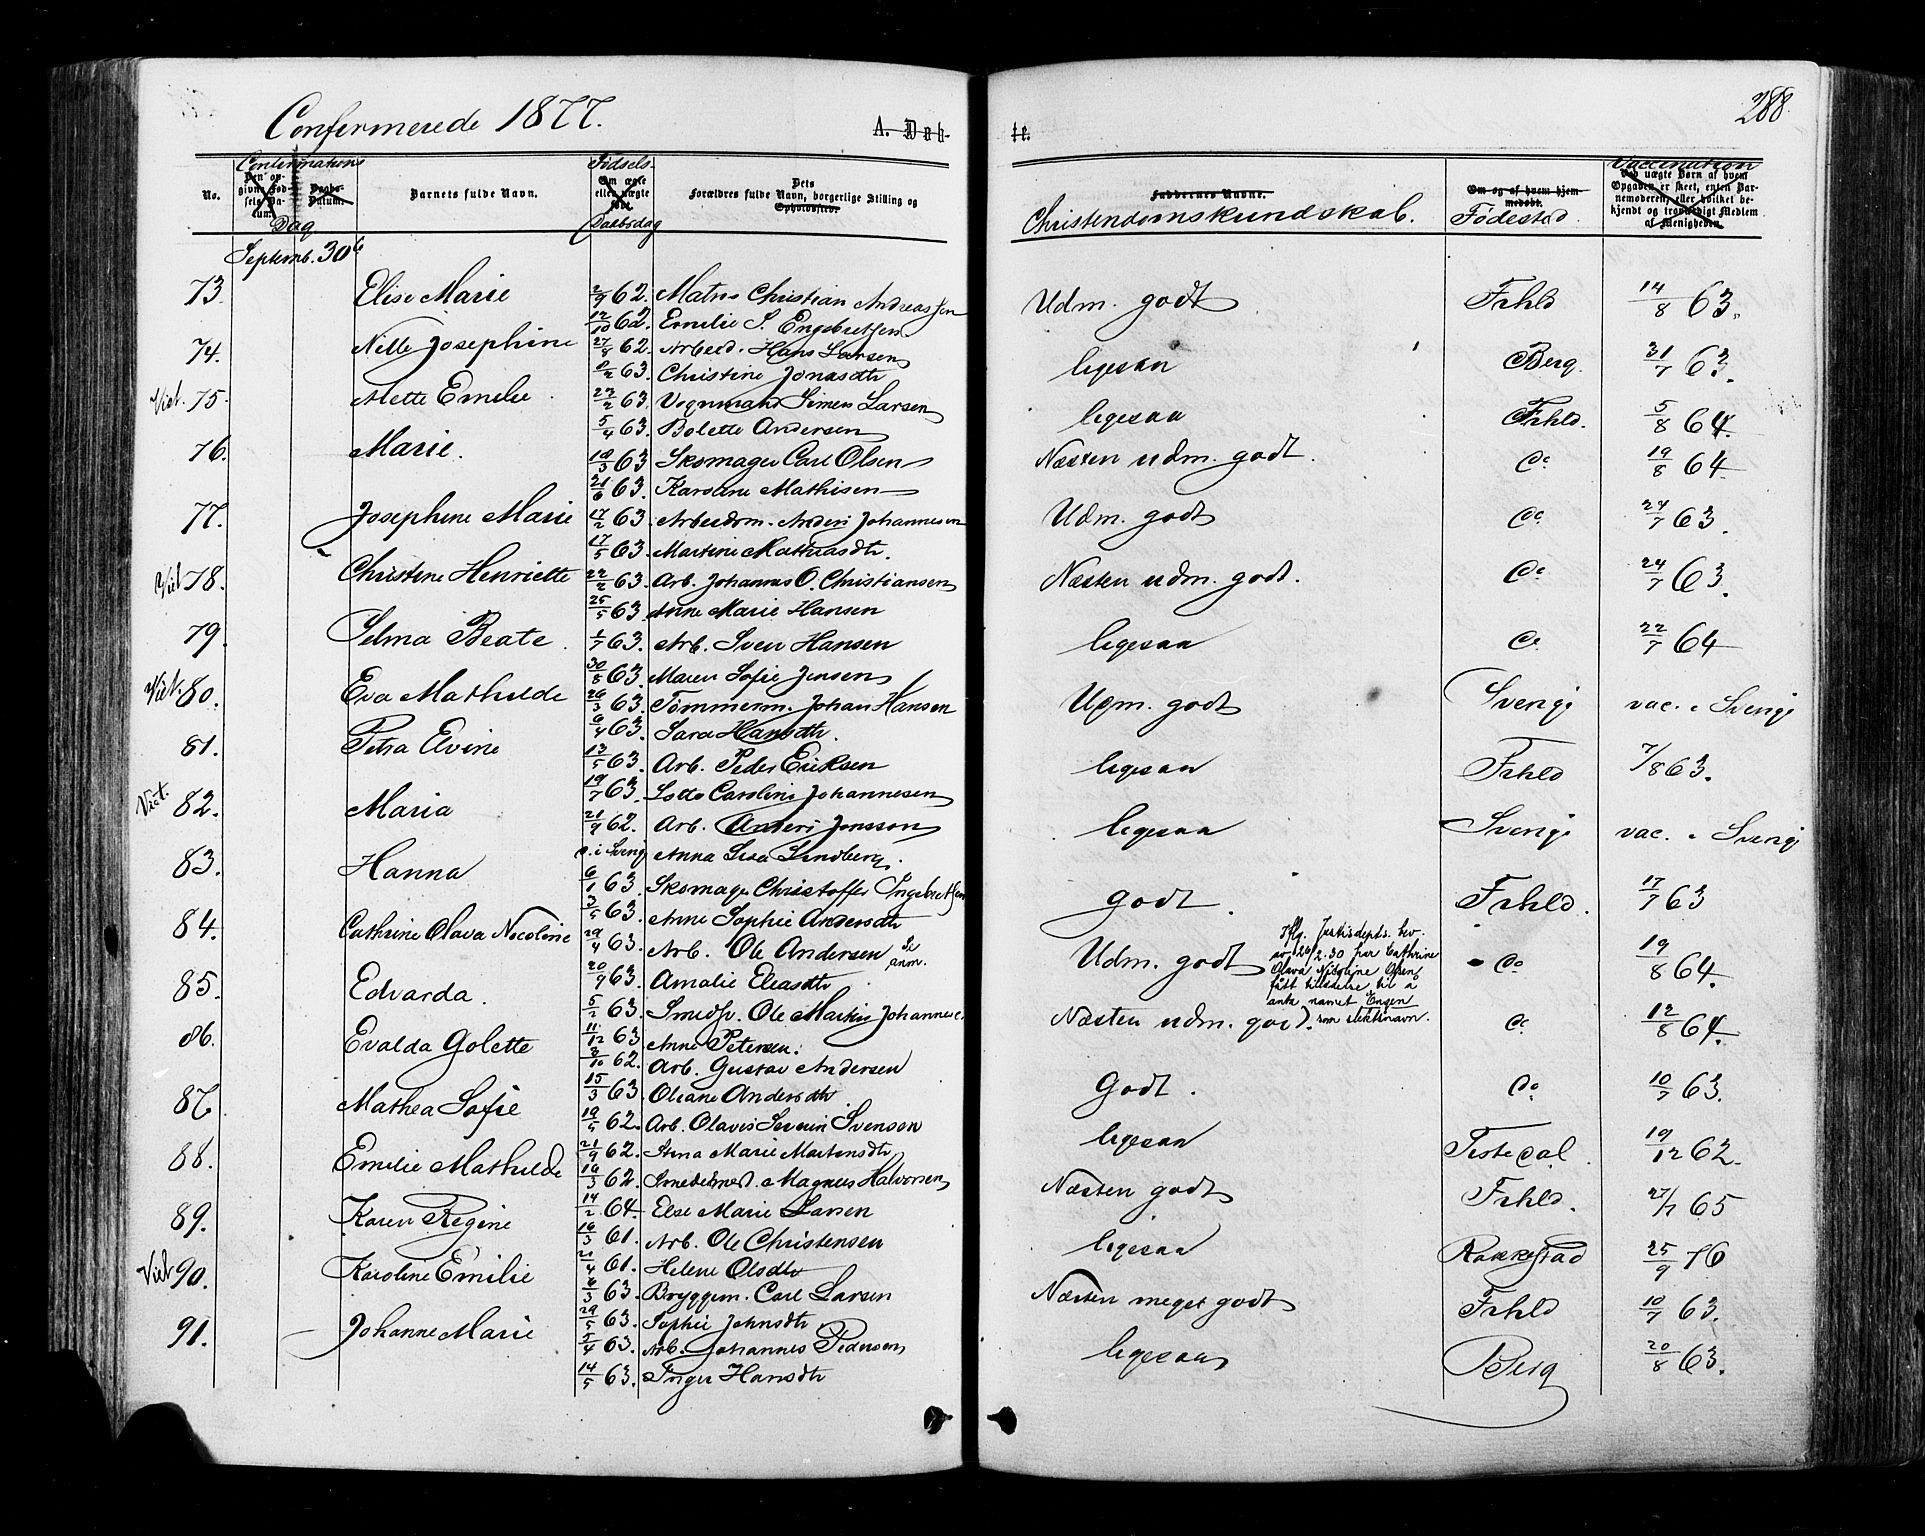 Confermerede 1877.
A. Døb-
te.
288.
Confirmations
Dag
No.
Barnets fulde Navn.
Fødsels
Daabsdag
Dets
Forældres fulde Navn, borgerlige Stilling og
Opholdssted.
Faddernes Navne.
Christendomskundskab.
Om og af hvem hjem-
medøbt.
Fødested
Vaccination
Ved uægte Børn af hvem
Opgaven er skeet, enten Bar-
nemoderen, eller hvilket be-
kjendt og troværdigt Medlem
af Menigheden.
Septemb. 30
73. Elise Marie 2/9 62. Mats Christian Andreassen Udm. godt Frhld 14/8 63.
12/10 62. Emilie S. Engebretsen
74. Nille Josephine 27/8 62. Arbeid. Hans Larsen ligesaa Berg. 31/7 63.
8/2 63. Christine Jonasdtr
Viet. 75. Mette Emilie. 23/2 63. Vognmand Simen Larsen ligesaa Frhld. 5/8 64.
5/4 63. Bolette Andersen
76. Marie. 18/3 63. Skomager Carl Olsen Næsten udm. godt. do 19/8 64
21/6 63. Karoline Mathisen
77. Josephine Marie 17/2 63. Arbeidsm. Anders Johannesen Udm. godt do 24/7 63.
17/5 63. Martine Mathiasdtr.
Viet 78. Christine Henriette 22/2 63. Arb. Johannes O. Christiansen Næsten udm. godt. do 24/7 63.
25/5 63. Anne Marie Hansen
79. Selma Beate. 1/7 63. Arb. Sven Hansen ligesaa do 22/7 64
30/8 63. Maren Sofie Jensen
Viet. 80. Eva Mathilde 29/3 63. Tømmerm. Johan Hansen Udm. godt Sverige vac. i Sverige
6/4 63. Sara Hansdtr.
81. Petra Elvine 13/5 63. Arb. Peder Eriksen ligesaa Frhld 7/8 63.
19/7 63. Lotte Caroline Johannesen
Viet. 82. Maria 21/9 62. Arb. Anders Jonsson ligesaa Sverige vac. i Sverige
d. i Sverig Anna Lisa Lindberg.
83. Hanna 6/1 63. Skomager Christoffer Ingebretsen godt. Frhld. 17/7 63
3/5 63. Anne Sophie Andersdtr
84. Cathrine Olava Nicoline 29/4 63. Arb. Ole Andersen Se anm. Udm. godt do 19/8 64.
Iflg. Justisdepts. brev
av 24/2.30 har Cathrine
Olava Nicoline Olsen
fått tilladelse til å
anta navnet Engen
som slektsnavn.
20/9 63. Amalie Eliasdtr
85. Edvarda. 5/2 63. Smedsv. Ole Martin Johannes. Næsten udm. godt. do 12/8 64.
11/12 63. Anne Petersen.
86. Evalda Golette 3/10 62. Arb. Gustav Andersen Godt. do 10/7 63.
15/3 63. Oliane Andersdtr.
87. Mathea Sofie 19/5 62. Arb. Olavis Severin Svensen ligesaa Tistedal. 19/12 62.
21/9 62. Stina Marie Martinsdtr
88. Emilie Mathilde 16/3 62. Smedemest. Magnus Halvorsen Næsten godt Frhld. 27/7 65
14/2 64. Else Marie Larsen
89. Karen Regine 16/3 61. Arb. Ole Christensen ligesaa Rakkestad 25/9 76
21/4 61. Helene Olsdtr
Viet 90. Karoline Emilie 6/3 63. Bryggem. Carl Larsen Næsten meget godt Frhld 10/7 63.
29/5 63. Sophie Johnsdtr.
91. Johanne Marie 5/4 63. Arb. Johannes Pedersen ligesaa Berg 20/8 63.
14/5 63. Inger Hansdtr